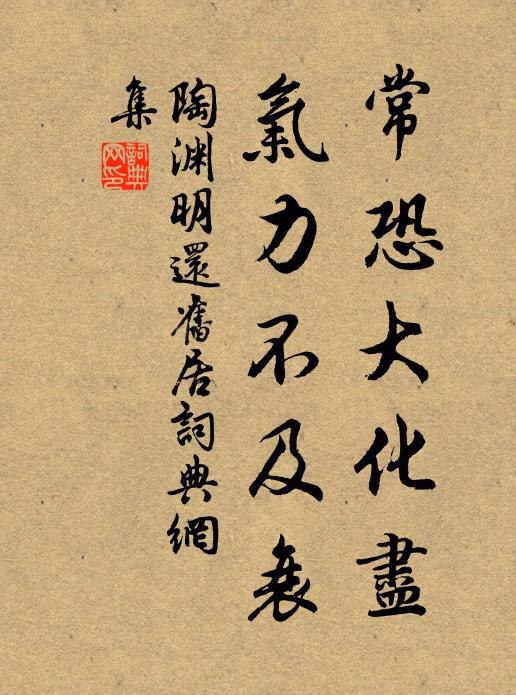 常恐大化盡
氣力不及衰
陶渊明還舊居詞典網
集
詞典
网印